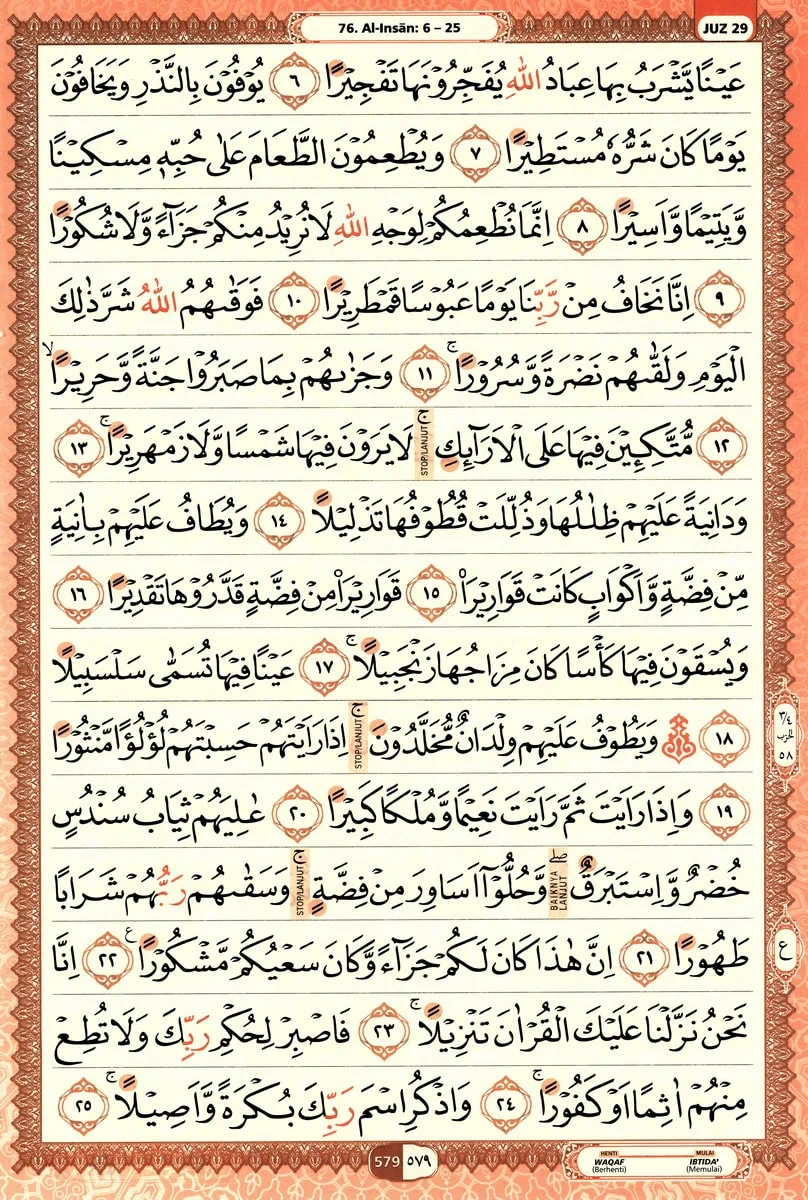 76. Al-Insān: 6 – 25
JUZ 29
عَيْنًا يَّشْرَبُ بِهَا عِبَادُ اللّٰهِ يُفَجِّرُوْنَهَا تَفْجِيْرًا ٦ يُوْفُوْنَ بِالنَّذْرِ وَيَخَافُوْنَ
يَوْمًا كَانَ شَرُّهٗ مُسْتَطِيْرًا ٧ وَيُطْعِمُوْنَ الطَّعَامَ عَلٰى حُبِّهٖ مِسْكِيْنًا
وَّيَتِيْمًا وَّاَسِيْرًا ٨ اِنَّمَا نُطْعِمُكُمْ لِوَجْهِ اللّٰهِ لَا نُرِيْدُ مِنْكُمْ جَزَاۤءً وَّلَا شُكُوْرًا
٩ اِنَّا نَخَافُ مِنْ رَّبِّنَا يَوْمًا عَبُوْسًا قَمْطَرِيْرًا ١٠ فَوَقٰىهُمُ اللّٰهُ شَرَّ ذٰلِكَ
الْيَوْمِ وَلَقّٰىهُمْ نَضْرَةً وَّسُرُوْرًاۚ ١١ وَجَزٰىهُمْ بِمَا صَبَرُوْا جَنَّةً وَّحَرِيْرًاۙ
١٢ مُّتَّكِـِٕيْنَ فِيْهَا عَلَى الْاَرَاۤىِٕكِۚ STOP/LANJUT لَا يَرَوْنَ فِيْهَا شَمْسًا وَّلَا زَمْهَرِيْرًاۚ ١٣
وَدَانِيَةً عَلَيْهِمْ ظِلٰلُهَا وَذُلِّلَتْ قُطُوْفُهَا تَذْلِيْلًا ١٤ وَيُطَافُ عَلَيْهِمْ بِاٰنِيَةٍ
مِّنْ فِضَّةٍ وَّاَكْوَابٍ كَانَتْ قَوَارِيْرَا۠ ١٥ قَوَارِيْرَا۟ مِنْ فِضَّةٍ قَدَّرُوْهَا تَقْدِيْرًا ١٦
وَيُسْقَوْنَ فِيْهَا كَأْسًا كَانَ مِزَاجُهَا زَنْجَبِيْلًاۚ ١٧ عَيْنًا فِيْهَا تُسَمّٰى سَلْسَبِيْلًا
١٨ وَيَطُوْفُ عَلَيْهِمْ وِلْدَانٌ مُّخَلَّدُوْنَۚ STOP/LANJUT اِذَا رَاَيْتَهُمْ حَسِبْتَهُمْ لُؤْلُؤًا مَّنْثُوْرًا
٣/٤ الحزب ٥٨
١٩ وَاِذَا رَاَيْتَ ثَمَّ رَاَيْتَ نَعِيْمًا وَّمُلْكًا كَبِيْرًا ٢٠ عٰلِيَهُمْ ثِيَابُ سُنْدُسٍ
خُضْرٌ وَّاِسْتَبْرَقٌۖ BAIKNYA LANJUT وَّحُلُّوْٓا اَسَاوِرَ مِنْ فِضَّةٍۚ STOP/LANJUT وَسَقٰىهُمْ رَبُّهُمْ شَرَابًا
طَهُوْرًا ٢١ اِنَّ هٰذَا كَانَ لَكُمْ جَزَاۤءً وَّكَانَ سَعْيُكُمْ مَّشْكُوْرًا ࣖ ٢٢ اِنَّا
ع
نَحْنُ نَزَّلْنَا عَلَيْكَ الْقُرْاٰنَ تَنْزِيْلًاۚ ٢٣ فَاصْبِرْ لِحُكْمِ رَبِّكَ وَلَا تُطِعْ
مِنْهُمْ اٰثِمًا اَوْ كَفُوْرًاۚ ٢٤ وَاذْكُرِ اسْمَ رَبِّكَ بُكْرَةً وَّاَصِيْلًاۚ ٢٥
579 ٥٧٩
HENTI WAQAF (Berhenti)
MULAI IBTIDA' (Memulai)